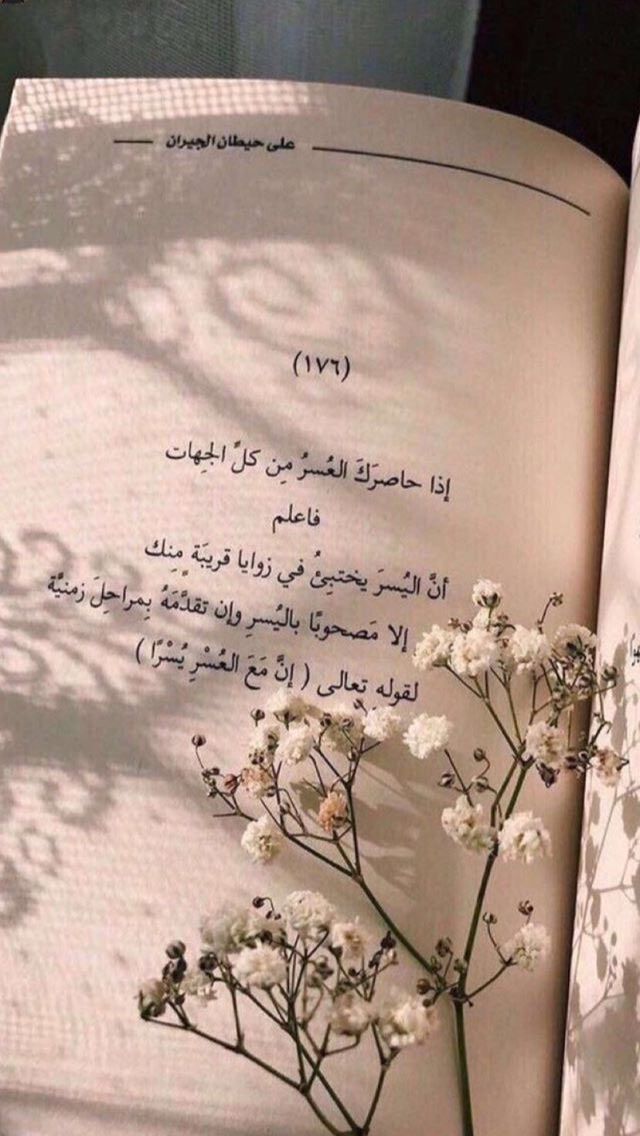 على حيطان الجيران
(١٧٦)
إذا حاصرَكَ العُسرُ مِن كلِّ الجِهات
فاعلم
أنَّ اليُسرَ يختبِئُ في زوايا قريبَة مِنك
إلا مَصحوبًا باليُسرِ وإن تقدَّمَهُ بِمراحِلَ زمنيَّة
لقولهِ تعالى ( إنَّ مَعَ العُسْرِ يُسْرًا )